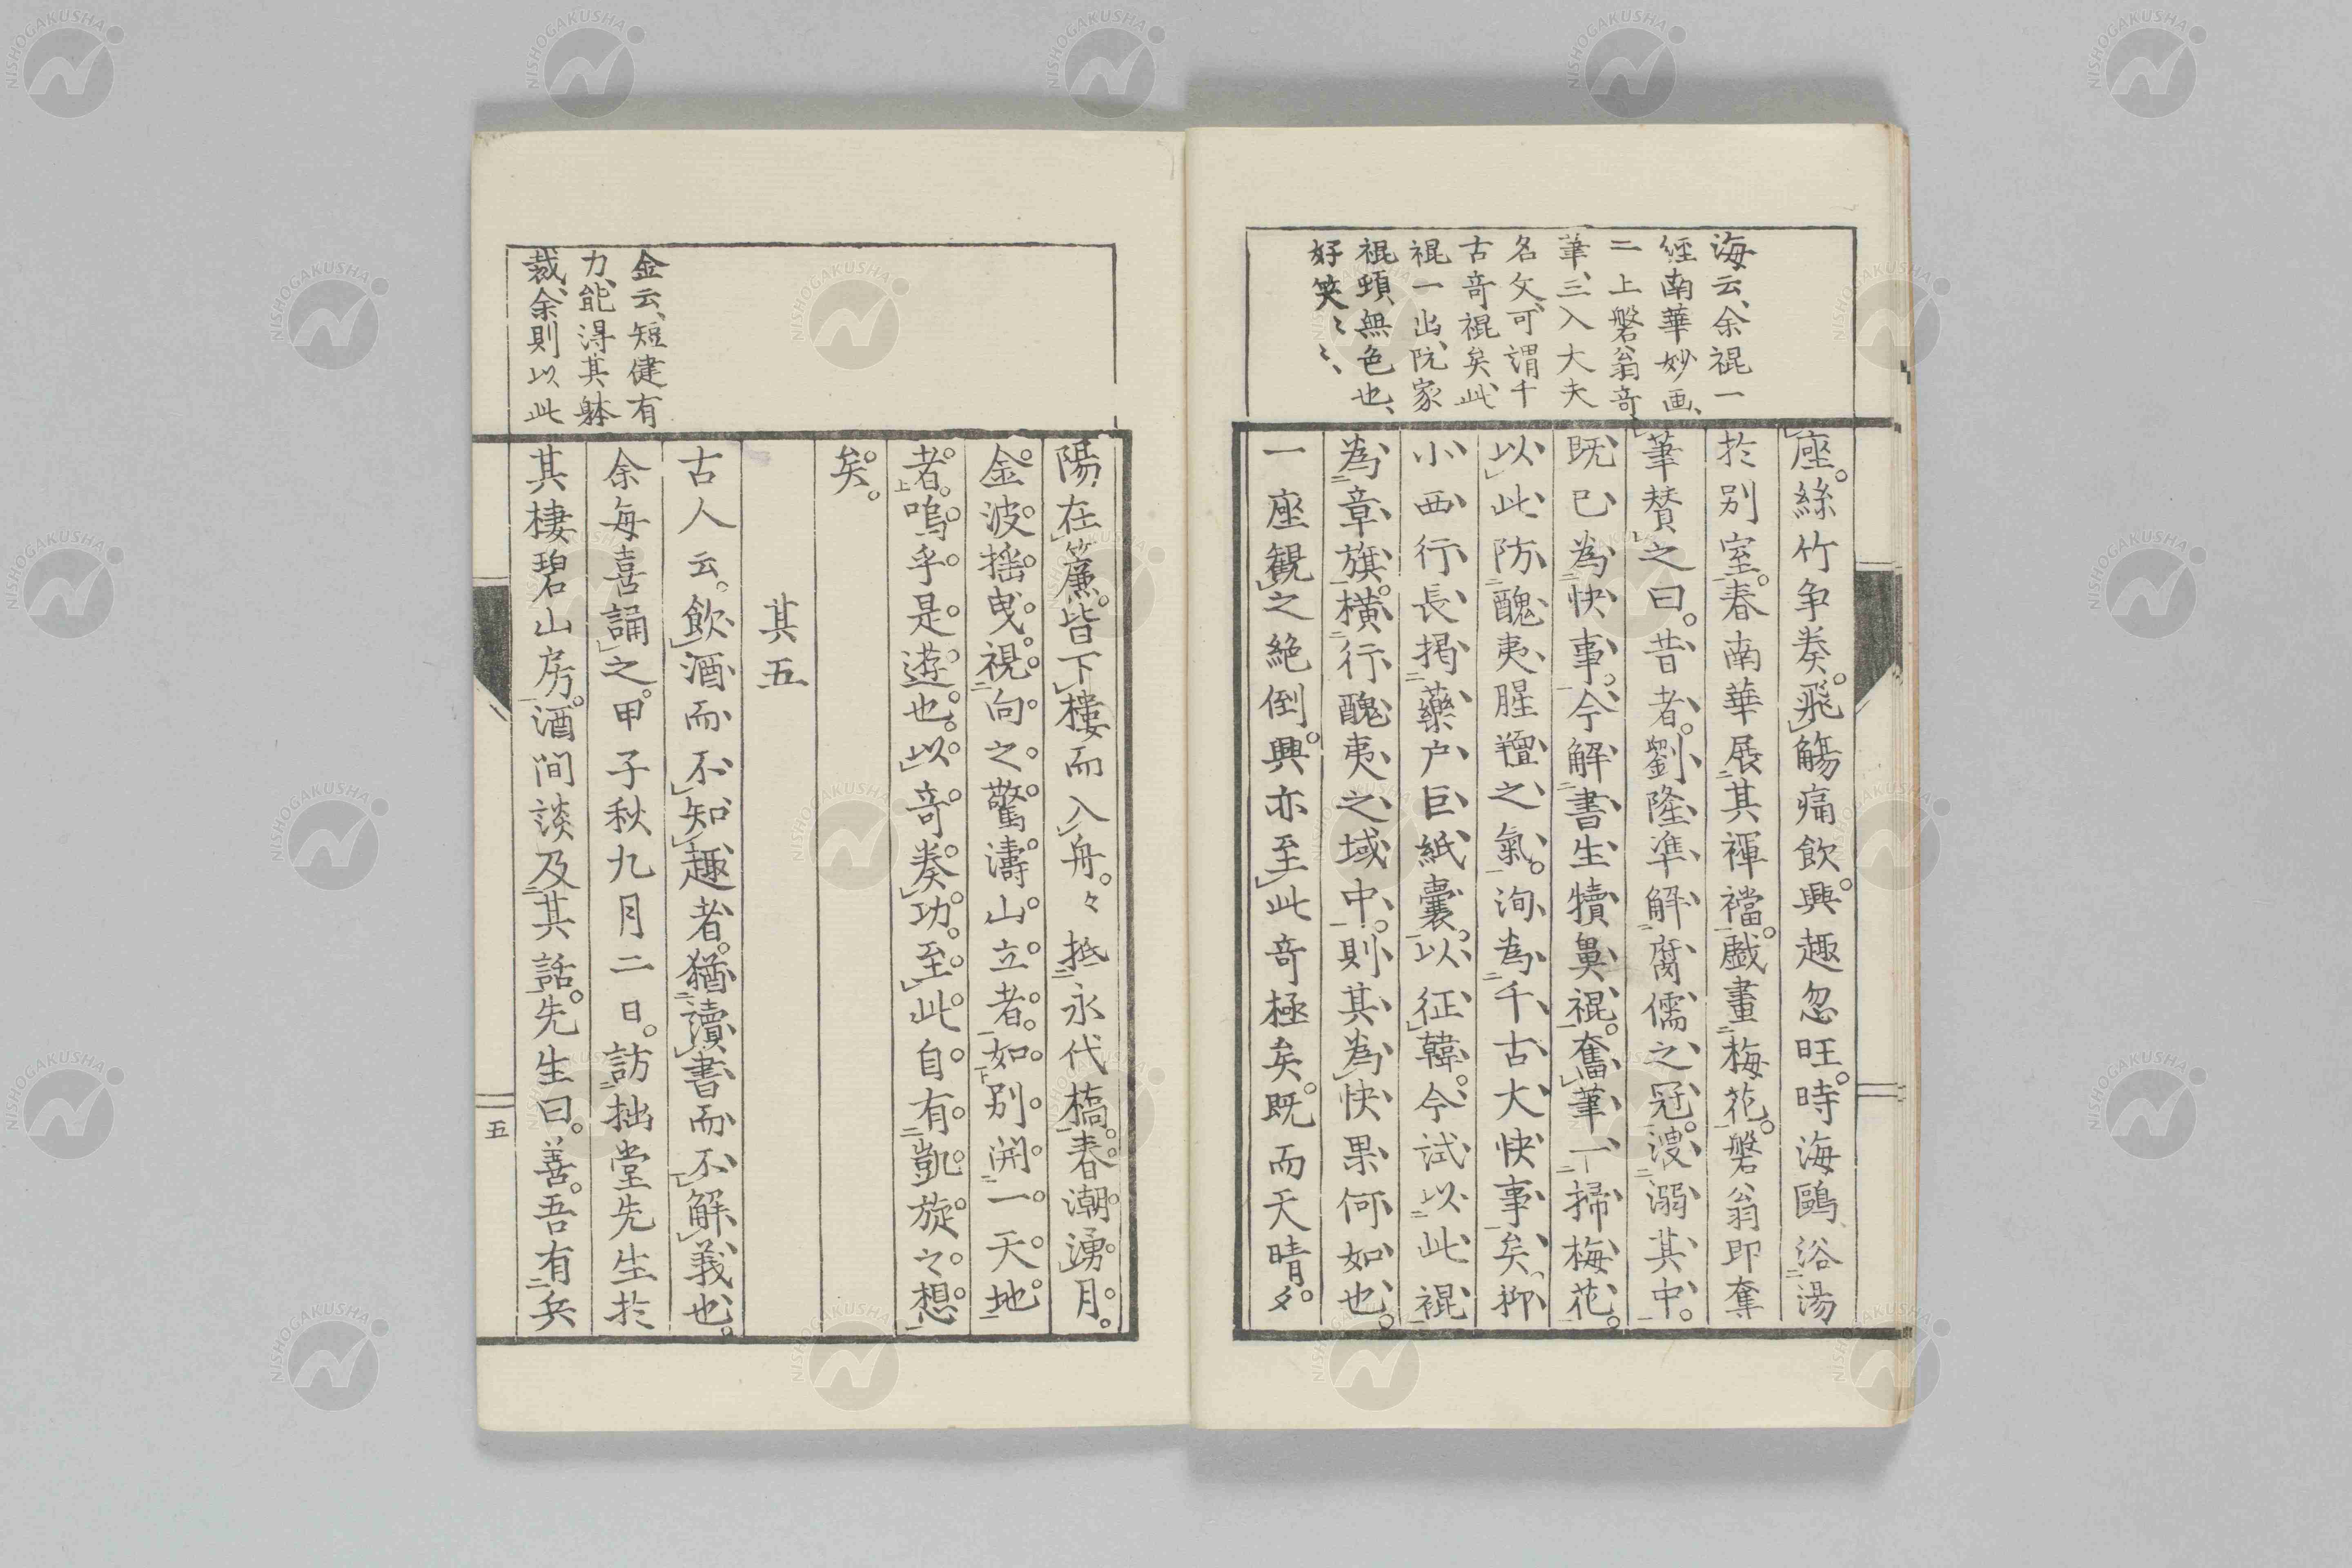 海云、余裩一
經南華妙画、
二上磐翁奇
筆、三入大夫
名文、可謂千
古奇裩矣、此
裩一出、阮家
裩頭無色也、
好笑〻〻、
座。絲竹争奏。飛觴痛飲。興趣忽旺。時海鷗浴湯
於別室。春南華展其褌襠。戲畫梅花。磐翁即奪
筆賛之曰。昔者。劉隆準解腐儒之冠。溲溺其中。
既已為快事。今解書生犢鼻裩。奮筆一掃梅花。
以此防醜夷腥羶之氣。洵為千古大快事矣。抑
小西行長掲藥戸巨紙囊。以征韓。今試以此裩
為章旗。横行醜夷之域中。則其為快果何如也。
一座観之絶倒。興亦至此奇極矣。既而天晴。夕
金云、短健有
力、能得其躰
裁、余則以此
陽在簾。皆下樓而入舟。々抵永代橋。春潮湧月。
金波揺曳。視向之驚濤山立者。如別開一天地
者。嗚乎是遊也。以奇奏功。至此自有凱旋之想
矣。
其五
古人云。飲酒而不知趣者。猶讀書而不解義也。
余毎喜誦之。甲子秋九月二日。訪拙堂先生於
其棲碧山房。酒間談及其話。先生曰。善。吾有兵
五
NISHOGAKUSHA